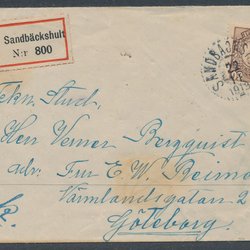 Sandbäckshult
N:r 800
SANDBÄCKSHULT
Tekn. Stud.
Herr Verner Bergquist
adr. Fru E. W. Reimer
Värmlandsgatan 2
Göteborg.